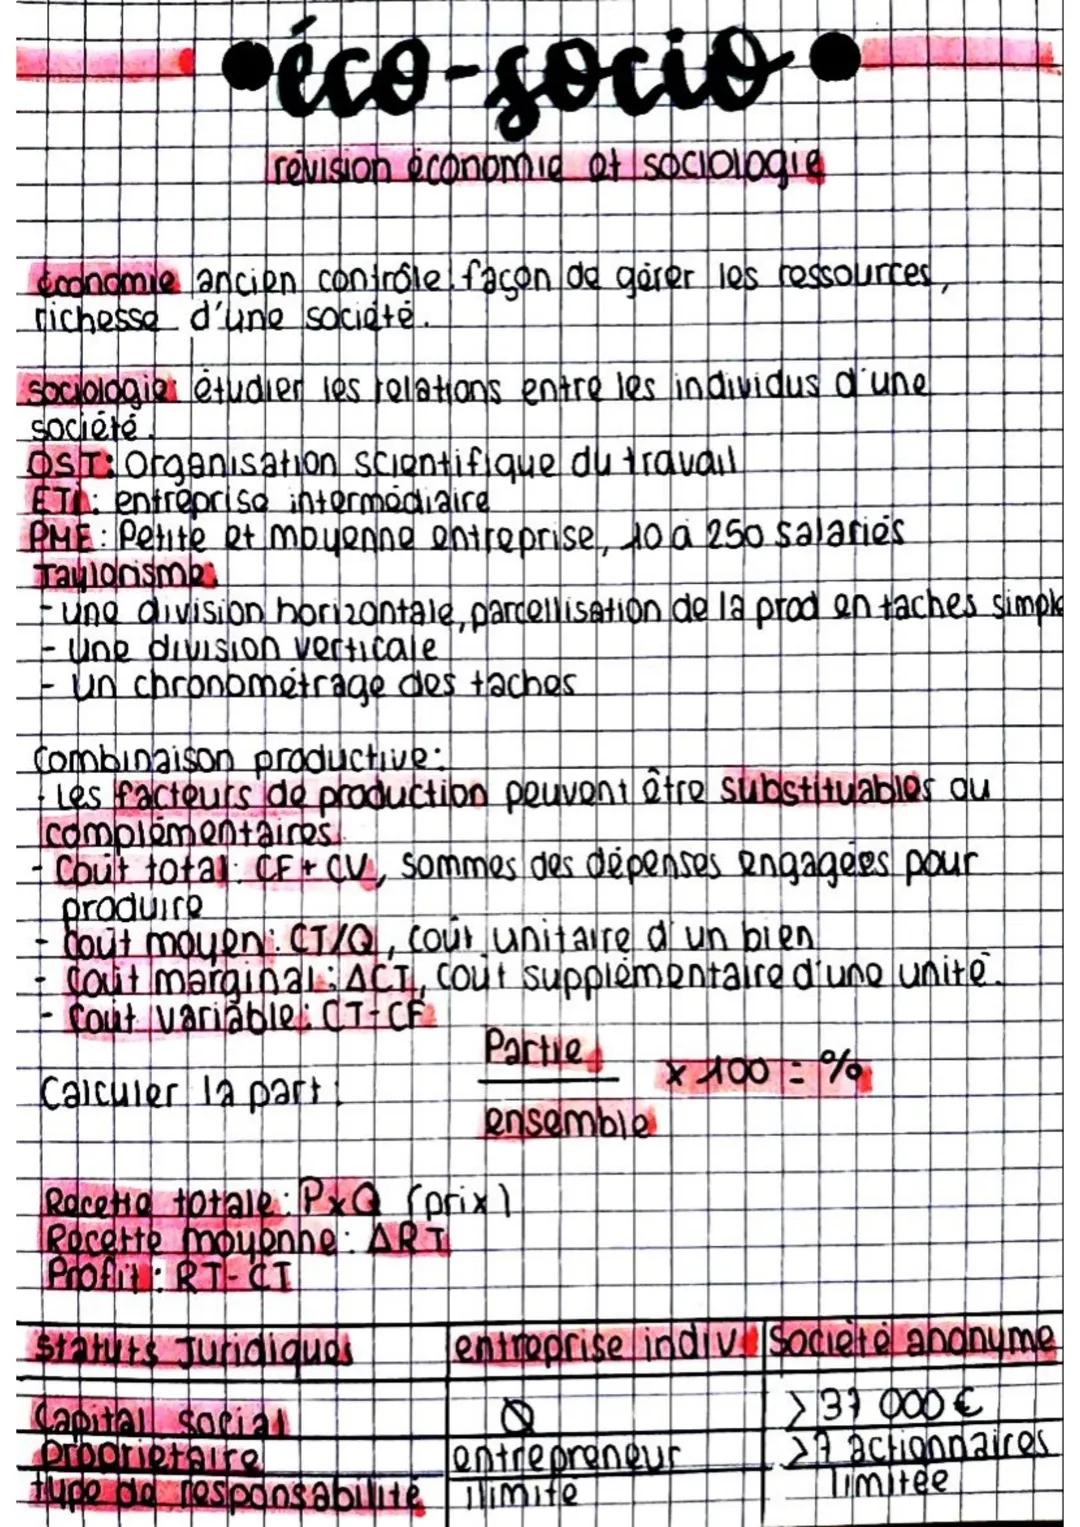 •éco-socio•
révision économie et sociologie
économie ancien contrôle façon de gérer les ressources,
richesse d'une société.
sociologie: étudier les relations entre les individus d'une
société.
OST: Organisation scientifique du travail
ETI: entreprise intermédiaire
PME: Petite et moyenne entreprise, 10 à 250 salariés
Taylorisme:
- une division horizontale, parcellisation de la prod en taches simple
- une division verticale
- un chronométrage des taches
Combinaison productive:
- Les facteurs de production peuvent être substituables ou
complémentaires.
- Coût total: CF + CV, sommes des dépenses engagées pour
produire
- Coût moyen: CT/Q, coût unitaire d'un bien
- Coût marginal: ΔCT, coût supplémentaire d'une unité.
- Coût variable: CT-CF
Calculer la part: Partie / ensemble x 100 = %
Recette totale: PxQ (prix)
Recette moyenne: ΔRT
Profit: RT-CT
Statuts Juridiques entreprise indiv. Société anonyme
Capital social Ø >37 000 €
proprietaire entrepreneur >7 actionnaires
type de responsabilité ilimité limitée